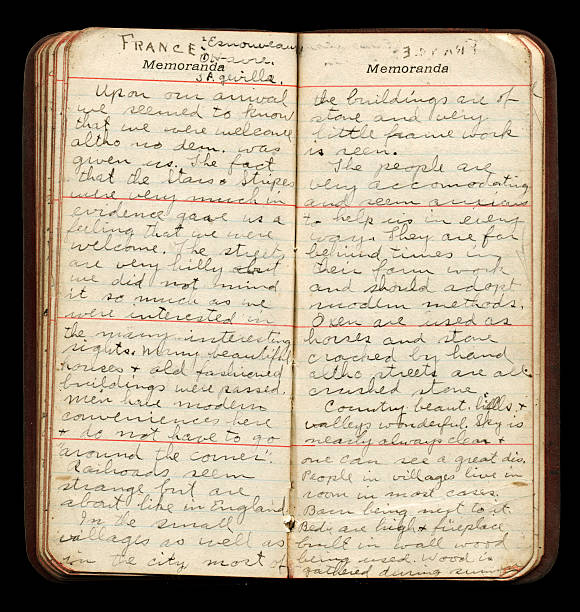 FRANCE:
Havre.
Memoranda
Upon our arrival
we seemed to know
that we were welcome
altho no dem. was
given us. The fact
that the Stars & Stripes
were very much in
evidence gave us a
feeling that we were
welcome. The streets
are very hilly but
we did not mind
it so much as we
were interested in
the many interesting
sights. Many beautiful
houses & old fashioned
buildings were passed.
Men have modern
conveniences here
& do not have to go
"around the corner".
Railroads seem
strange but are
about like in England
In the small
villages as well as
in the city most of
FRANCE
Memoranda
the buildings are of
stone and very
little frame work
is seen.
The people are
very accomodating
and seem anxious
to help us in every
way. They are far
behind times in
their farm work
and should adopt
modern methods.
Oxen are used as
horses and stone
cracked by hand
altho streets are all
crushed stone
Country beaut. hills &
valleys wonderful. Sky is
nearly always clear &
one can see a great dis.
People in villages live in
room in most cases.
Barn being next to it.
Beds are high & fireplace
built in wall wood
being used. Wood is
gathered during